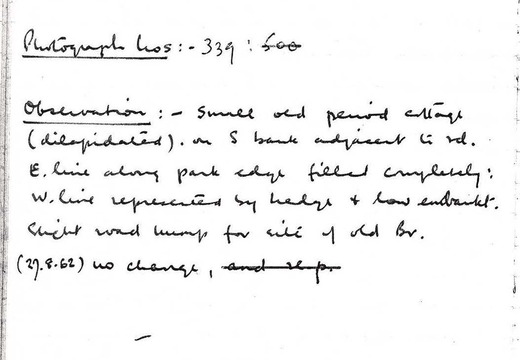 Photograph Nos :- 339 : 500
Observation :- Small old period cottage
(dilapidated). on S bank adjacent to rd.
E. line along park edge filled completely:
W. line represented by hedge + low embankt.
Slight road hump for site of old Br.
(27.8.62) no change, and